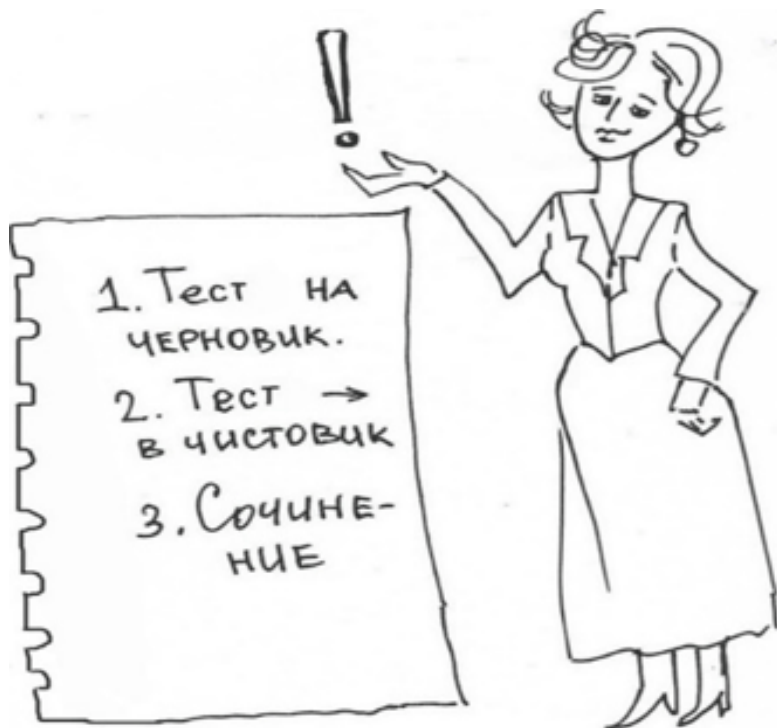 !
1. Тест на
черновик.
2. Тест →
в чистовик
3. Сочине-
ние